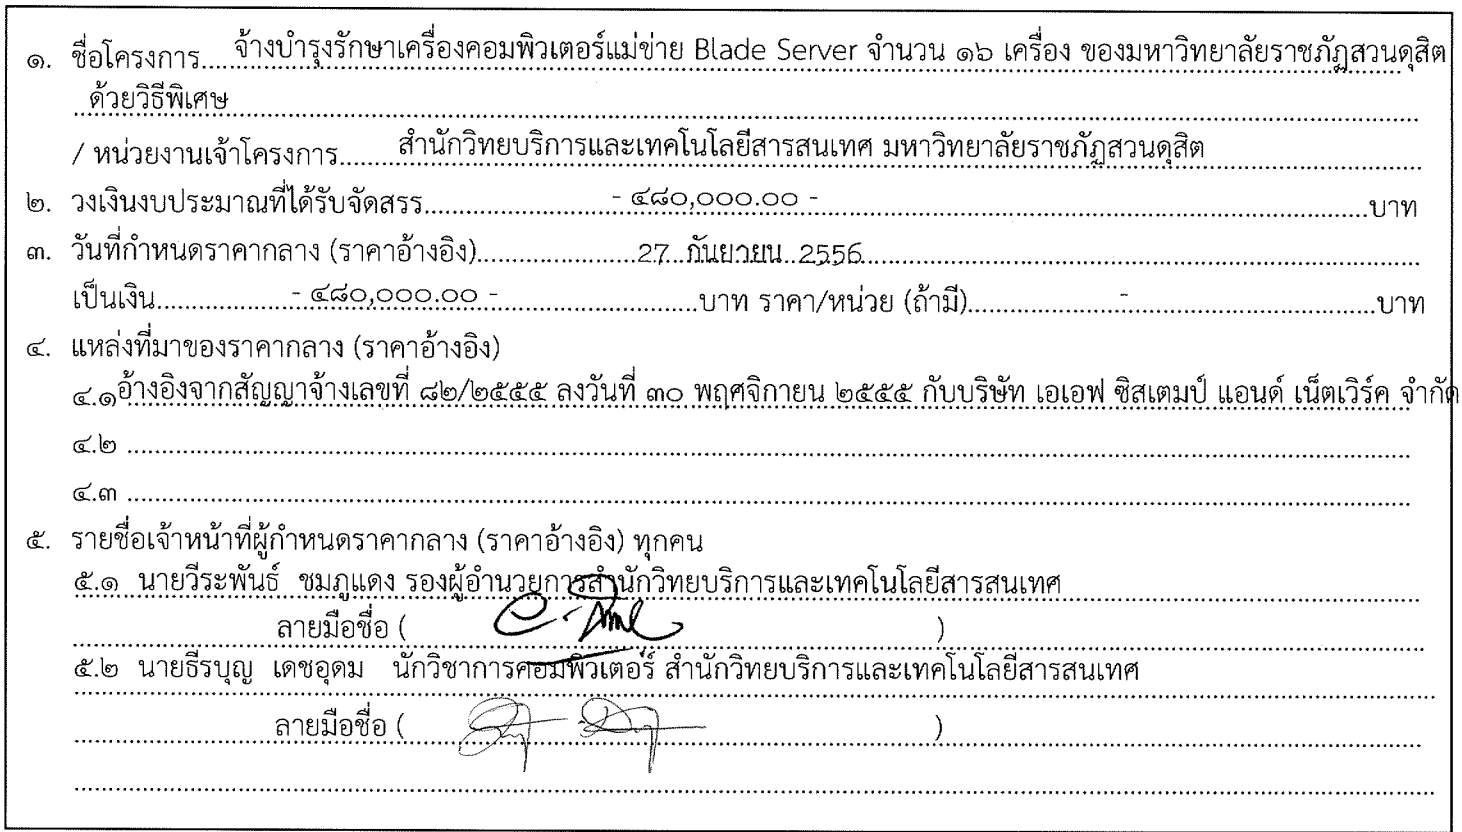 ๑. ชื่อโครงการ....จ้างบำรุงรักษาเครื่องคอมพิวเตอร์แม่ข่าย Blade Server จำนวน ๑๖ เครื่อง ของมหาวิทยาลัยราชภัฏสวนดุสิต
ด้วยวิธีพิเศษ
/ หน่วยงานเจ้าโครงการ........สำนักวิทยบริการและเทคโนโลยีสารสนเทศ มหาวิทยาลัยราชภัฏสวนดุสิต
๒. วงเงินงบประมาณที่ได้รับจัดสรร........- ๔๘๐,๐๐๐.๐๐ -........บาท
๓. วันที่กำหนดราคากลาง (ราคาอ้างอิง)........27 กันยายน 2556........
เป็นเงิน........- ๔๘๐,๐๐๐.๐๐ -........บาท ราคา/หน่วย (ถ้ามี)........-........บาท
๔. แหล่งที่มาของราคากลาง (ราคาอ้างอิง)
๔.๑ อ้างอิงจากสัญญาจ้างเลขที่ ๘๒/๒๕๕๕ ลงวันที่ ๓๐ พฤศจิกายน ๒๕๕๕ กับบริษัท เอเอฟ ซิสเตมป์ แอนด์ เน็ตเวิร์ค จำกัด
๔.๒ ........
๔.๓ ........
๕. รายชื่อเจ้าหน้าที่ผู้กำหนดราคากลาง (ราคาอ้างอิง) ทุกคน
๕.๑ นายวีระพันธ์ ชมภูแดง รองผู้อำนวยการสำนักวิทยบริการและเทคโนโลยีสารสนเทศ
ลายมือชื่อ ( )
๕.๒ นายธีรบุญ เดชอุดม นักวิชาการคอมพิวเตอร์ สำนักวิทยบริการและเทคโนโลยีสารสนเทศ
ลายมือชื่อ ( )